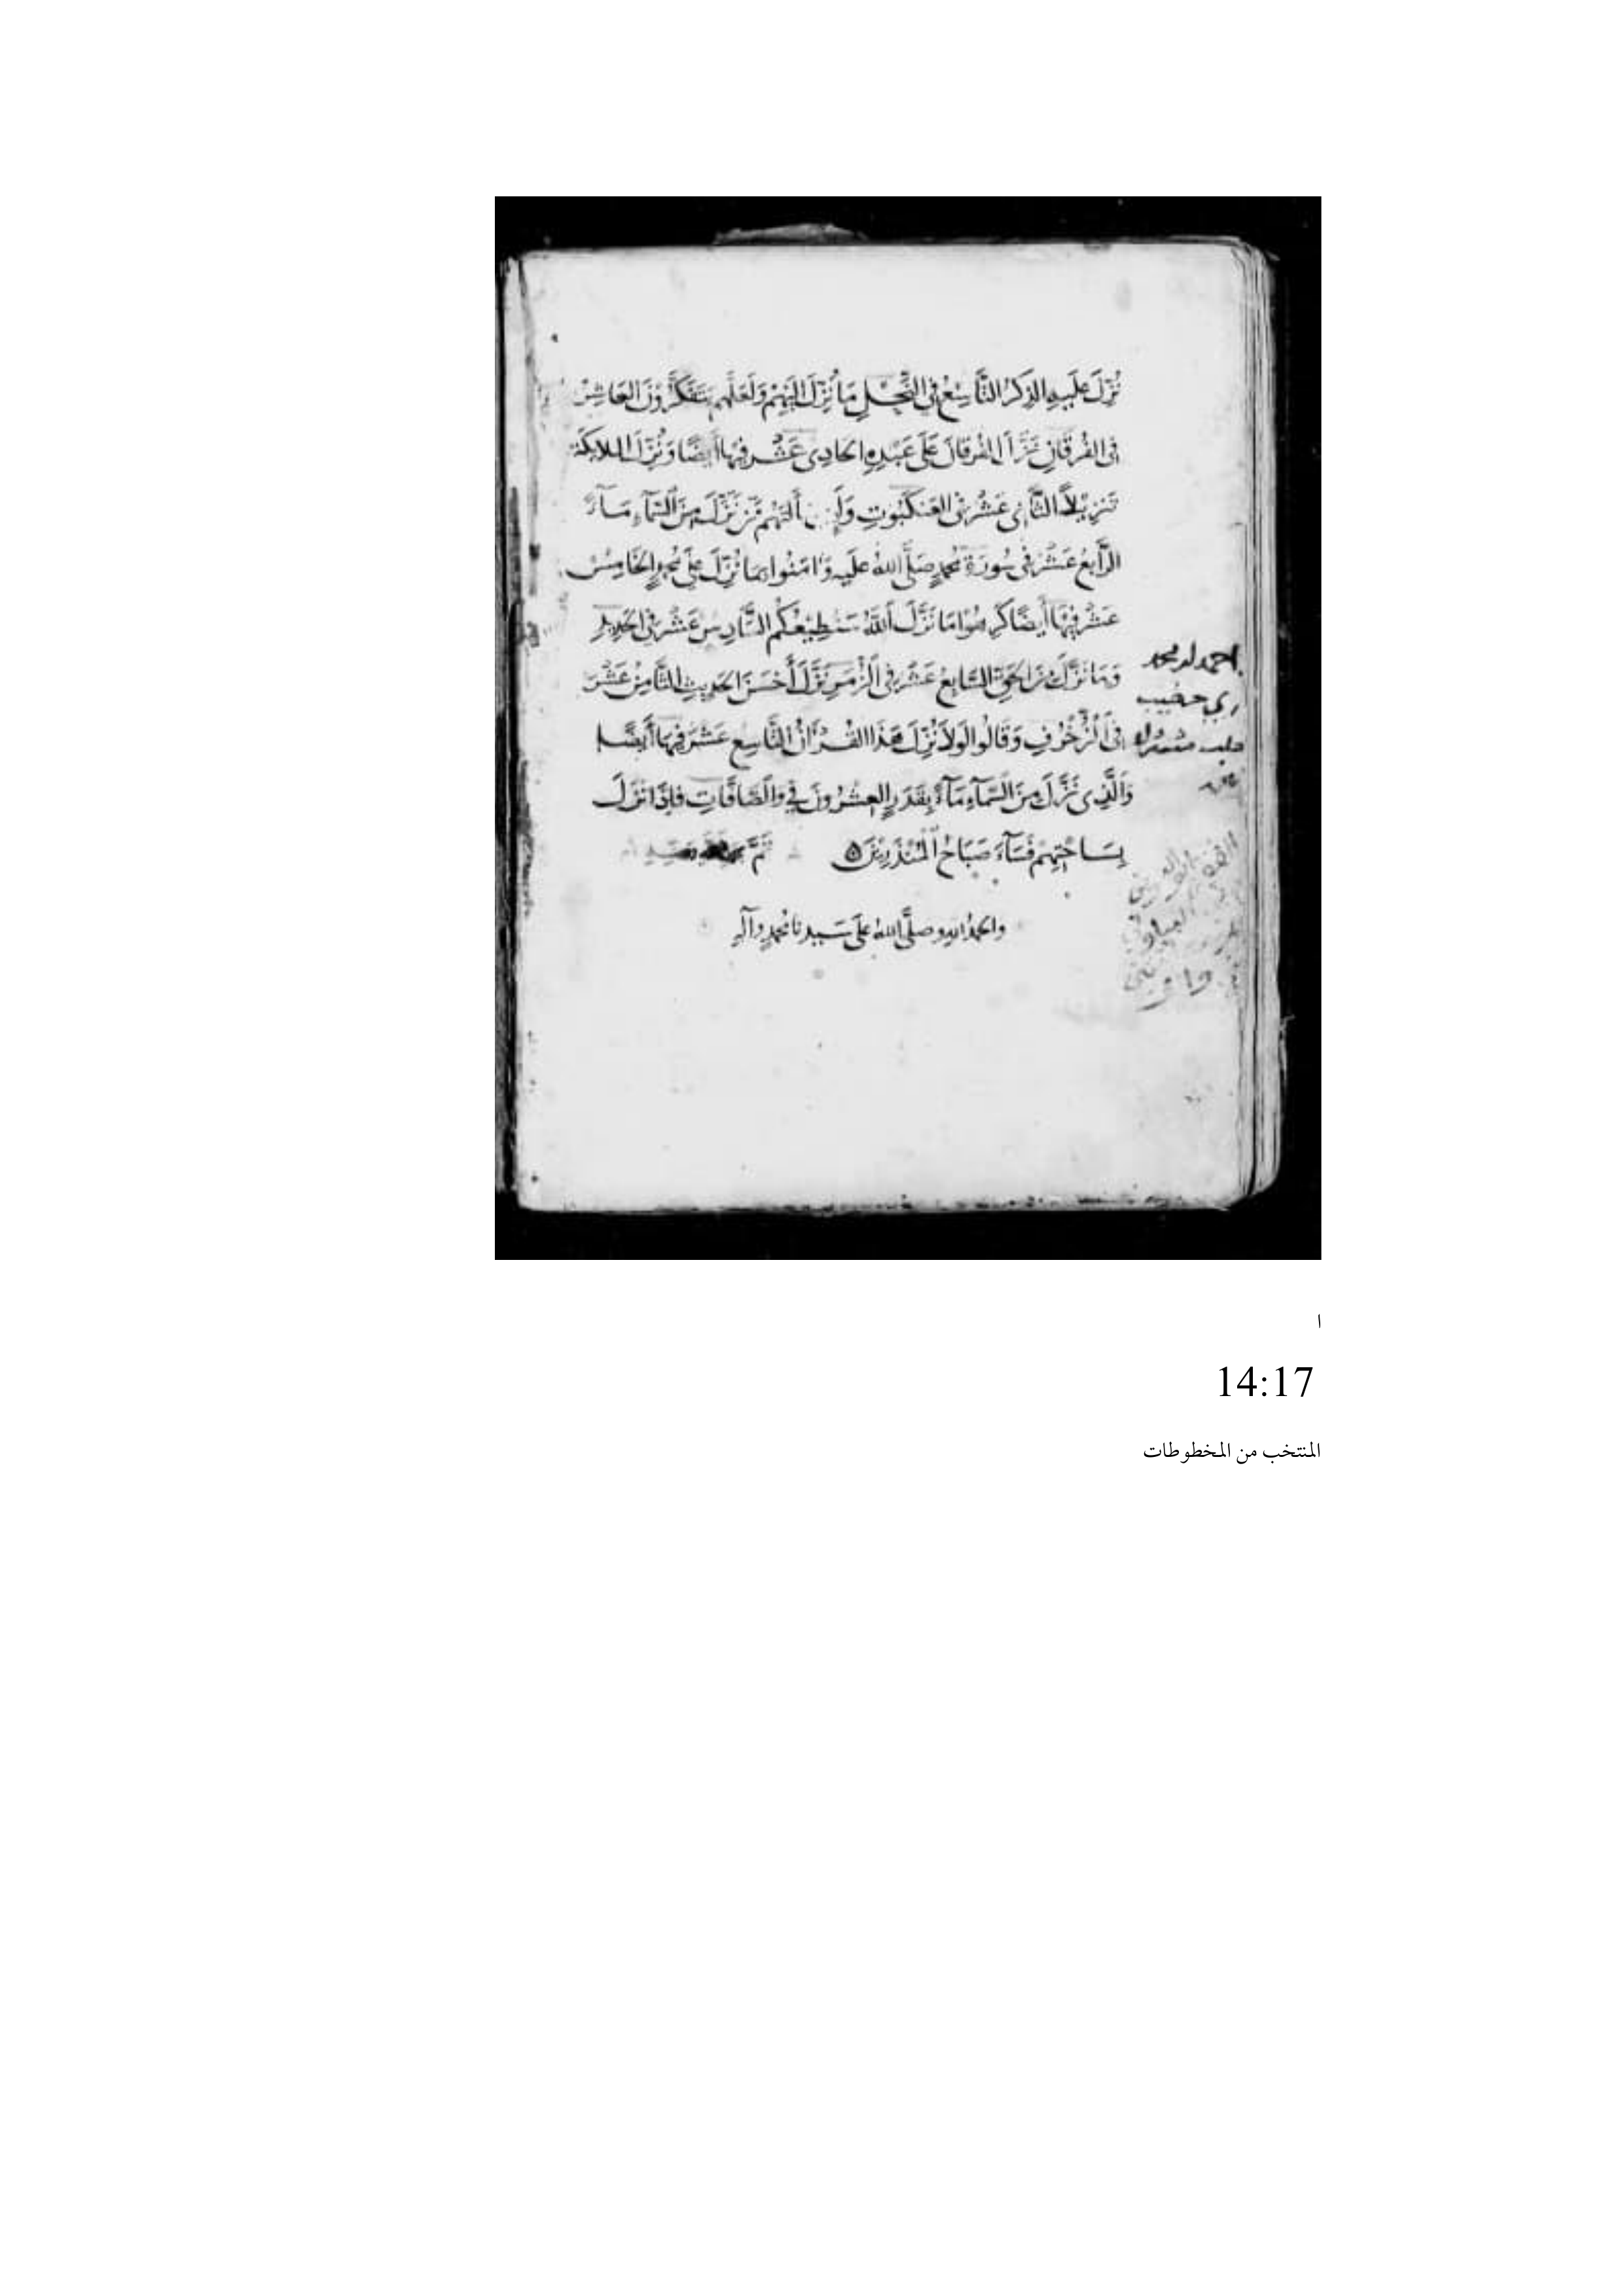 نُزِّلَ عَلَيهِ الذِّكرُ التَّاسِعُ فِى النَّحْلِ مَا نُزِّلَ اِلَيْهِمْ وَلَعَلَّهم يَتَفَكَّرُونَ العَاشِرُ
فِى الفُرقَانِ نَزَّلَ الفُرقَانَ عَلَى عَبْدِهِ الحَادِى عَشَر فِيهَا أَيضًا وَنُزِّلَ الملائكَة
تَنزِيْلاً الثَّانِى عَشَرَ فى العَنكَبُوتِ وَلَئِن سَأَلتَهُم مَّن نَزَّلَ مِنَ السَّمَآءِ مَآءً
الرَّابعُ عَشَر فى سُورَةِ مُحَمَّدٍ صَلَّى اللهُ عَلَيه وَءَامَنُوا بِمَا نُزِّلَ عَلَى مُحَمَّدٍ الخَامِسُ
عَشَر فِيْهَا أَيضًا كَرِهُوا مَا نَزَّلَ اَللَّهُ سَنُطِيْعُكُم السَّادِسُ عَشَر فى الحَدِيدِ
وَمَا نَزَلَ مِنَ الحَقِّ السَّابِعُ عَشَر فى اَلزُّمَرِ نَزَّلَ أَحْسَنَ الحَدِيثِ الثَّامِنُ عَشَرَ
فِى اَلزُّخْرُفِ وَقَالُوا لَولاَ نُزِّلَ هَذَا القُرْآنُ التَّاسِع عَشَرَ فِيهَا أَيضًا
وَالَّذِى نَزَّلَ مِنَ السَّمَآءِ مَآءً بِقَدَرٍ العِشْرُونَ فِي وَالصَّافَّاتِ فَإِذَا نَزَلَ
بِسَاحَتِهِمْ فَسَآءَ صَبَاحُ اَلْمُنْذَرِيْنَ تَمَّ
والحمدُ للهِ وصلَّى اللهُ عَلَى سَيدنا مُحمدٍ وَآلهِ
احمد لد محمد
حلب
ا
14:17
المنتخب من المخطوطات